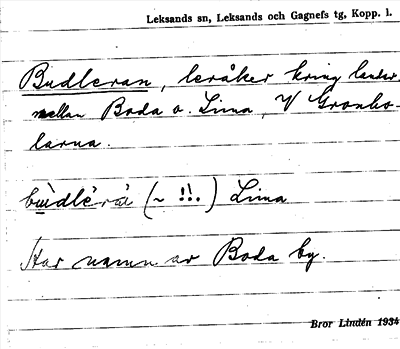 Leksands sn, Leksands och Gagnefs tg, Kopp. l.
Budleran, leråker kring landsv.
mellan Boda o. Lima, V Gronbo-
larna.
Lima
Har namn av Boda by.
Bror Lindén 1934